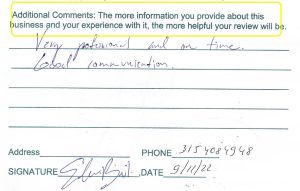 Additional Comments: The more information you provide about this
business and your experience with it, the more helpful your review will be.
Very professional and on time.
Good communication.
Address PHONE 3154084948
SIGNATURE DATE 9/11/22